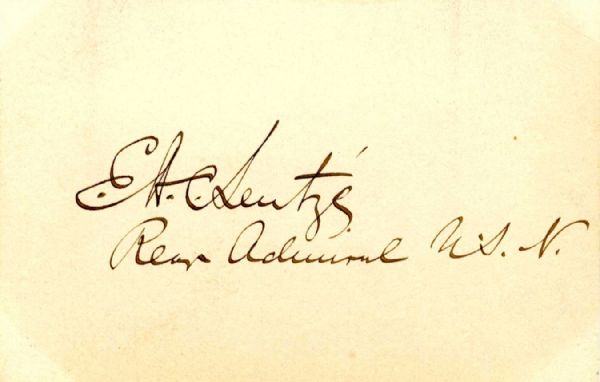 E.H.C. Leutzé
Rear Admiral U.S.N.